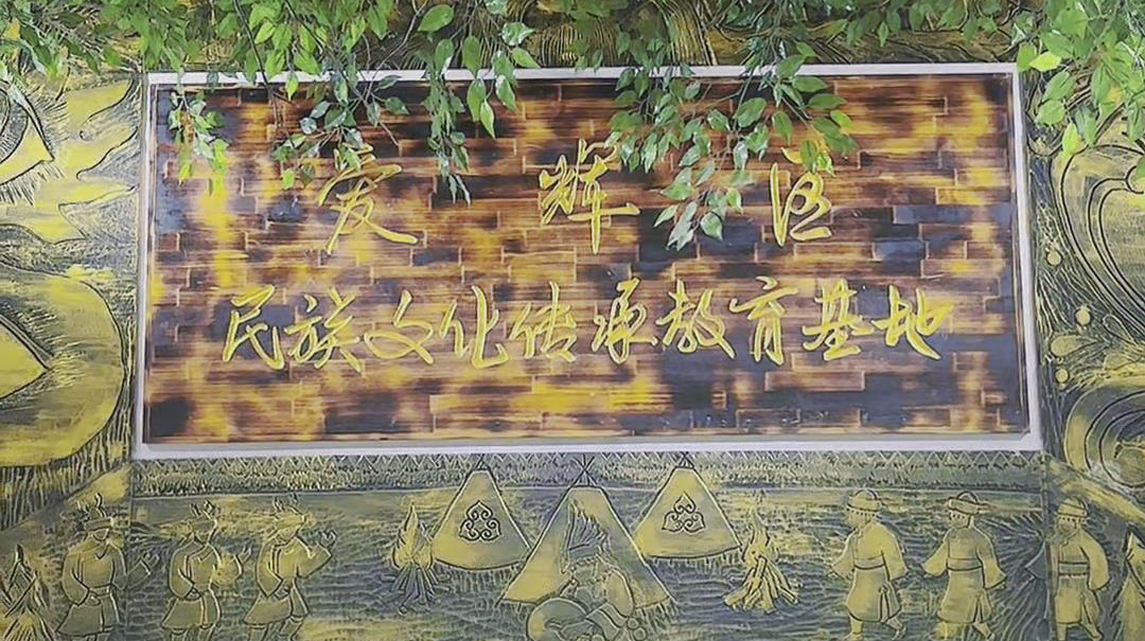 爱辉区
民族文化传承教育基地